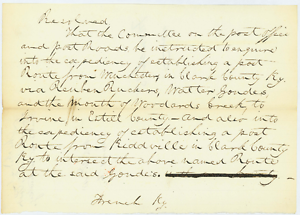 Resolved
That the Committee on the post offices
and post Roads be instructed to enquire
into the expediency of establishing a post
Route from Winchester in Clark County Ky.
via Reuben Ruckers, Walter Gondes
and the Mouth of Woodards Creek to
Irvine in Estill County - And also into
the expediency of establishing a post
Route from Kiddville in Clark County
Ky to intersect the above named Route
at the said Gondes.
French Ky.